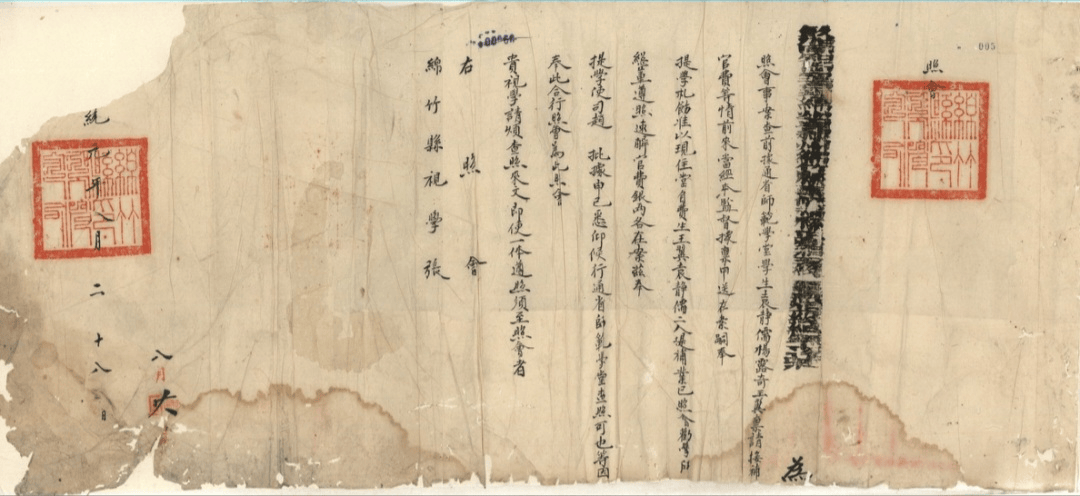 005
照會
為
照會事業查前據通省師範學堂學生袁靜儒楊露奇王翼稟請接補
官費等情前來當經本監督據稟申送在案嗣奉
提學札飭准以現住堂自費生王翼袁靜儒二人遞補業已照會勸學所
經董遵照速解官費銀兩各在案茲奉
提學使司趙 批據申已悉仰候行通省師範學堂查照可也等因
奉此合行照會為此照會
貴視學請煩查照來文即使一体遵照須至照會者
右照會
綿竹縣視學張
統元年八月二十八日
八月